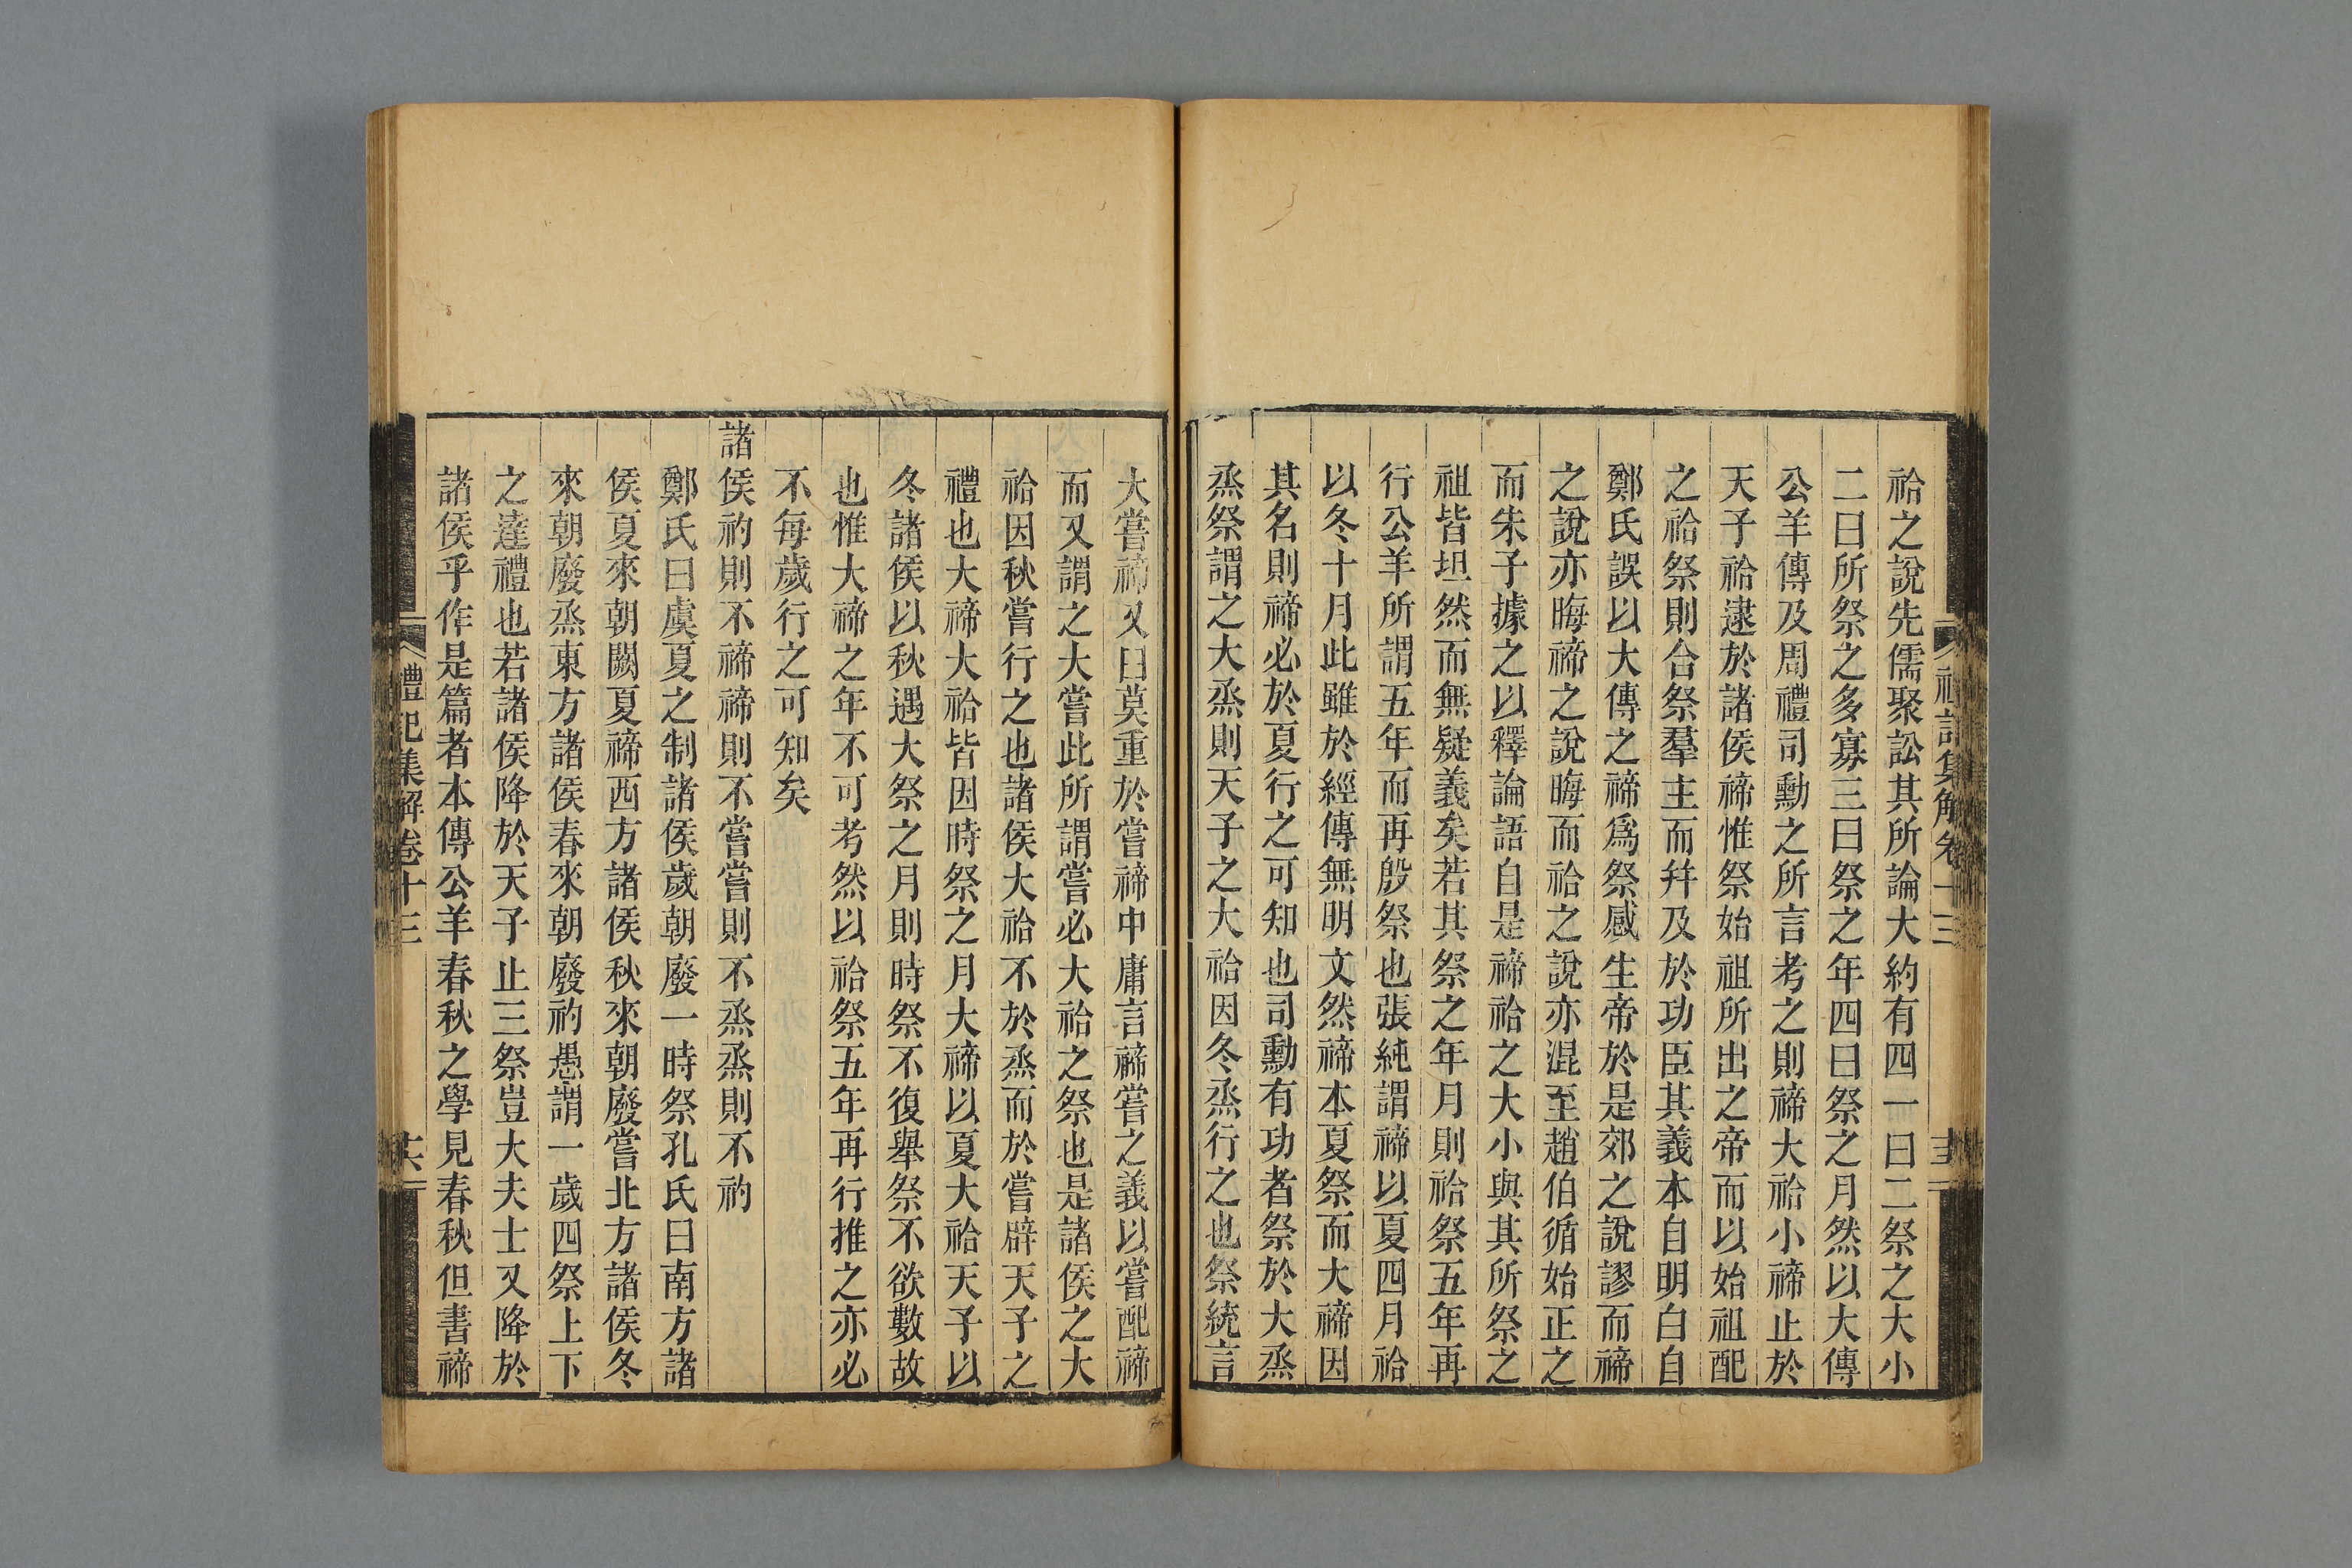 祫之說先儒聚訟其所論大約有四一曰二祭之大小
二曰所祭之多寡三曰祭之年四曰祭之月然以大傳
公羊傳及周禮司勳之所言考之則禘大祫小禘止於
天子祫逮於諸侯禘惟祭始祖所出之帝而以始祖配
之祫祭則合祭羣主而幷及於功臣其義本自明白自
鄭氏誤以大傳之禘爲祭感生帝於是郊之說謬而禘
之說亦晦禘之說晦而祫之說亦混至趙伯循始正之
而朱子據之以釋論語自是禘祫之大小與其所祭之
祖皆坦然而無疑義矣若其祭之年月則祫祭五年再
行公羊所謂五年而再殷祭也張純謂禘以夏四月祫
以冬十月此雖於經傳無明文然禘本夏祭而大禘因
其名則禘必於夏行之可知也司勳有功者祭於大烝
烝祭謂之大烝則天子之大祫因冬烝行之也祭統言
大嘗禘又曰莫重於嘗禘中庸言禘嘗之義以嘗配禘
而又謂之大嘗此所謂嘗必大祫之祭也是諸侯之大
祫因秋嘗行之也諸侯大祫不於烝而於嘗辟天子之
禮也大禘大祫皆因時祭之月大禘以夏大祫天子以
冬諸侯以秋遇大祭之月則時祭不復舉祭不欲數故
也惟大禘之年不可考然以祫祭五年再行推之亦必
不每歲行之可知矣
諸侯礿則不禘禘則不嘗嘗則不烝烝則不礿
鄭氏曰虞夏之制諸侯歲朝廢一時祭孔氏曰南方諸
侯夏來朝闕夏禘西方諸侯秋來朝廢嘗北方諸侯冬
來朝廢烝東方諸侯春來朝廢礿愚謂一歲四祭上下
之達禮也若諸侯降於天子止三祭豈大夫士又降於
諸侯乎作是篇者本傳公羊春秋之學見春秋但書禘
禮記集解卷十三
十六